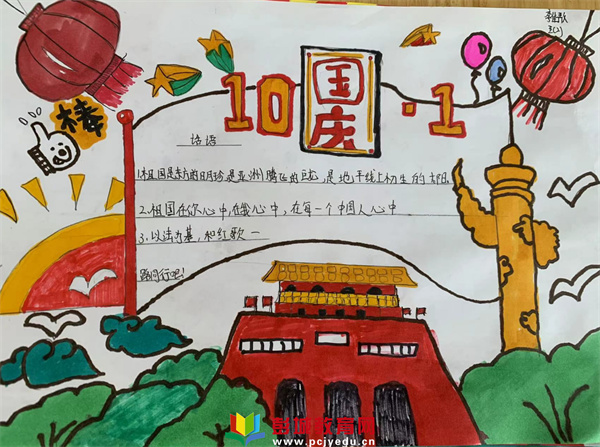 3(2)
棒
10 国庆 ·1
话语
1.祖国是东方的明珍是亚洲腾飞的巨龙,是地平线上初生的
2.祖国在你心中,在我心中,在每一个中国人心中
3.以法为基,和红歌一
路同行吧!
教育网
www.pcjyedu.cn